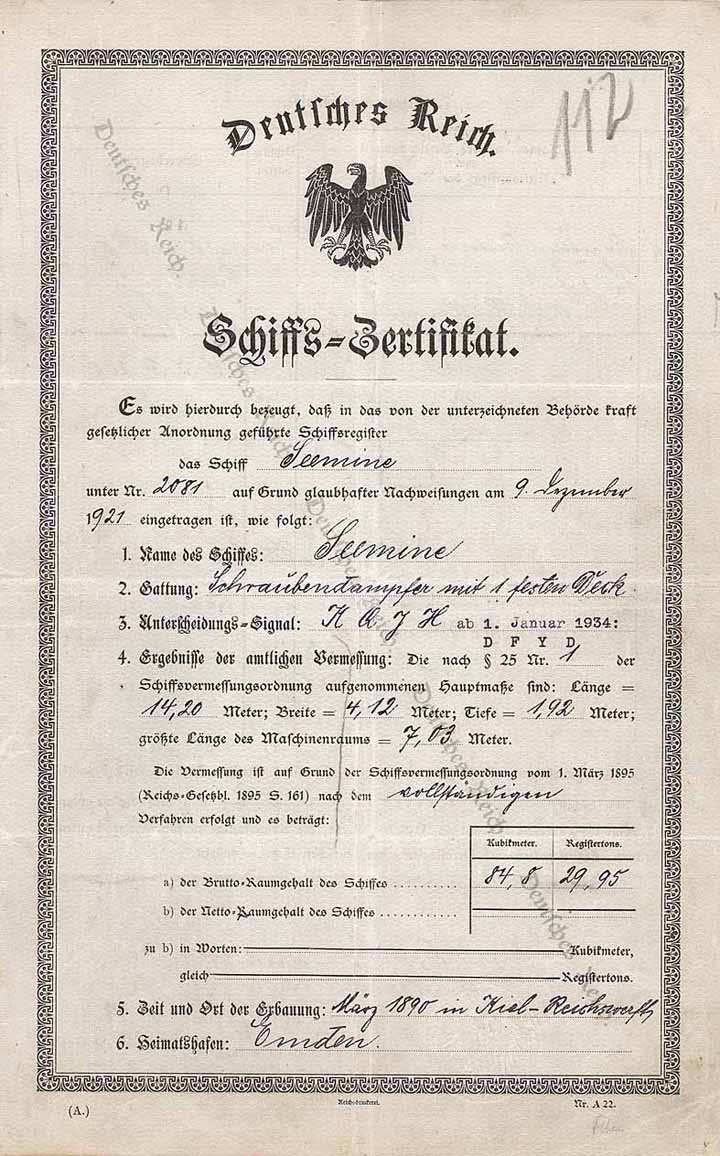 112
Deutsches Reich.
Schiffs-Zertifikat.
Es wird hierdurch bezeugt, daß in das von der unterzeichneten Behörde kraft
gesetzlicher Anordnung geführte Schiffsregister
das Schiff Seemine
unter Nr. 2081 auf Grund glaubhafter Nachweisungen am 9. Dezember
1921 eingetragen ist, wie folgt:
1. Name des Schiffes: Seemine
2. Gattung: Schraubendampfer mit 1 festen Deck
3. Unterscheidungs-Signal: K Q J H ab 1. Januar 1934:
D F Y D
4. Ergebnisse der amtlichen Vermessung: Die nach § 25 Nr. 1 der
Schiffsvermessungsordnung aufgenommenen Hauptmaße sind: Länge =
14,20 Meter; Breite = 4,12 Meter; Tiefe = 1,92 Meter;
größte Länge des Maschinenraums = 7,03 Meter.
Die Vermessung ist auf Grund der Schiffsvermessungsordnung vom 1. März 1895
(Reichs-Gesetzbl. 1895 S. 161) nach dem vollständigen
Verfahren erfolgt und es beträgt:
Kubikmeter. Registertons.
a) der Brutto-Raumgehalt des Schiffes .......... 84,8 29,95
b) der Netto-Raumgehalt des Schiffes ............
zu b) in Worten: Kubikmeter,
gleich Registertons.
5. Zeit und Ort der Erbauung: März 1890 in Kiel-Reichswerft
6. Heimatshafen: Emden.
(A.) Reichsdruckerei. Nr. A 22.
Deutsches Reich.
Deutsches Reich
Deutsches Reich
Deutsches Reich
Deutsches Reich